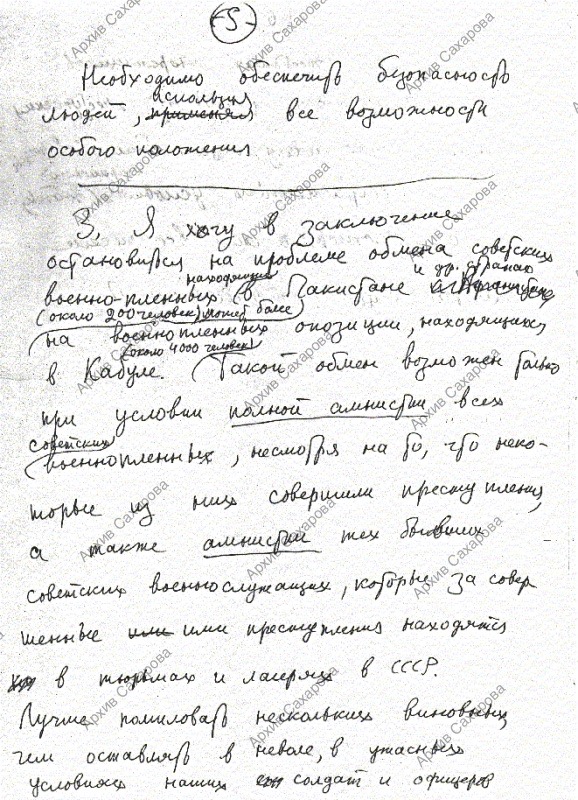 -5-
Необходимо обеспечить безопасность
используя
людей, применяя все возможности
особого положения
3. Я хочу в заключение
остановиться на проблеме обмена советских
находящихся и др. странах
военно-пленных в Пакистане
(около 200 человек, может более)
на военнопленных опозиции, находящихся
(около 4000 человек)
в Кабуле. Такой обмен возможен только
при условии полной амнистии всех
советских
военнопленных, несмотря на то, что неко-
торые из них совершили преступления,
а также амнистии тех бывших
советских военнослужащих, которые за совер
шенные ими преступления находятся
в тюрьмах и лагерях в СССР.
Лучше помиловать нескольких виновных,
чем оставлять в неволе, в ужасных
условиях наших солдат и офицеров
Архив Сахарова